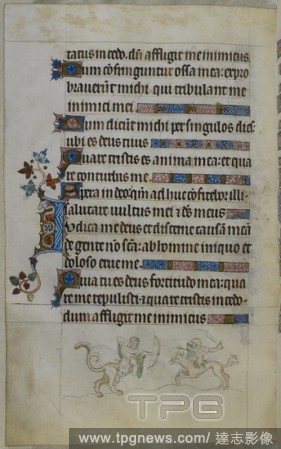 tatus incedo. dū affligit me inimicus.
Dum cōfringuntur ossa mea: expro
braverūt michi qui tribulant me
inimici mei.
Dum dicūt michi per singulos dies
ubi es deus tuus
Quare tristis es anima mea: et qua
re conturbas me
Spera in deo: qm̄ adhuc cōfitebor illi
salutare vultus mei et dē meus
Iudica me deus et discerne causā meā
de gente nō scā: ab homine iniquo et
doloso erue me
Quia tu es deus fortitudo mea: qua
re me repulisti et quare tristis ince
dum affligit me inimicus
TPG
www.tpgnews.com/ 達志影像